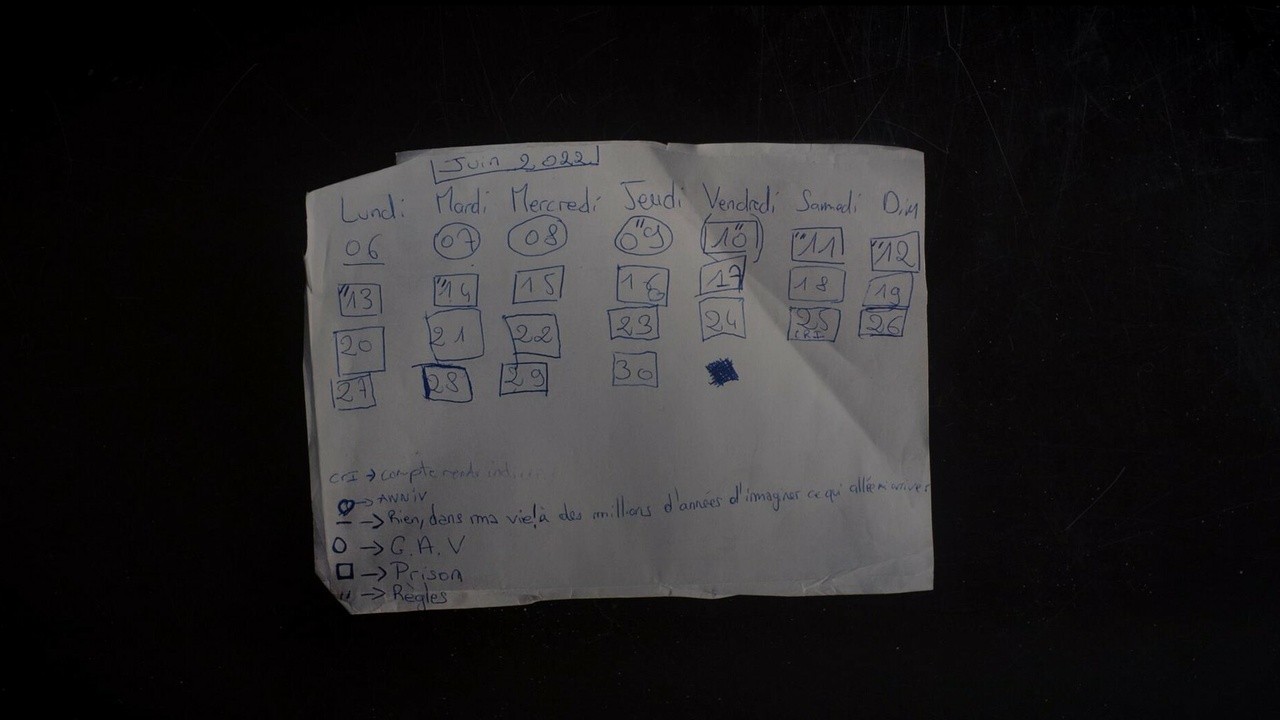 Juin 2022
Lundi Mardi Mercredi Jeudi Vendredi Samedi Dim
06 07 08 "09 "10 "11 "12
"13 "14 15 16 17 18 19
20 21 22 23 24 25 26
CRI
27 28 29 30
CRI → compte rendu
→ ANNIV
– → Rien, dans ma vie, à des millions d'années d'imaginer ce qui allé arriver
O → G.A.V
□ → Prison
" → Règles